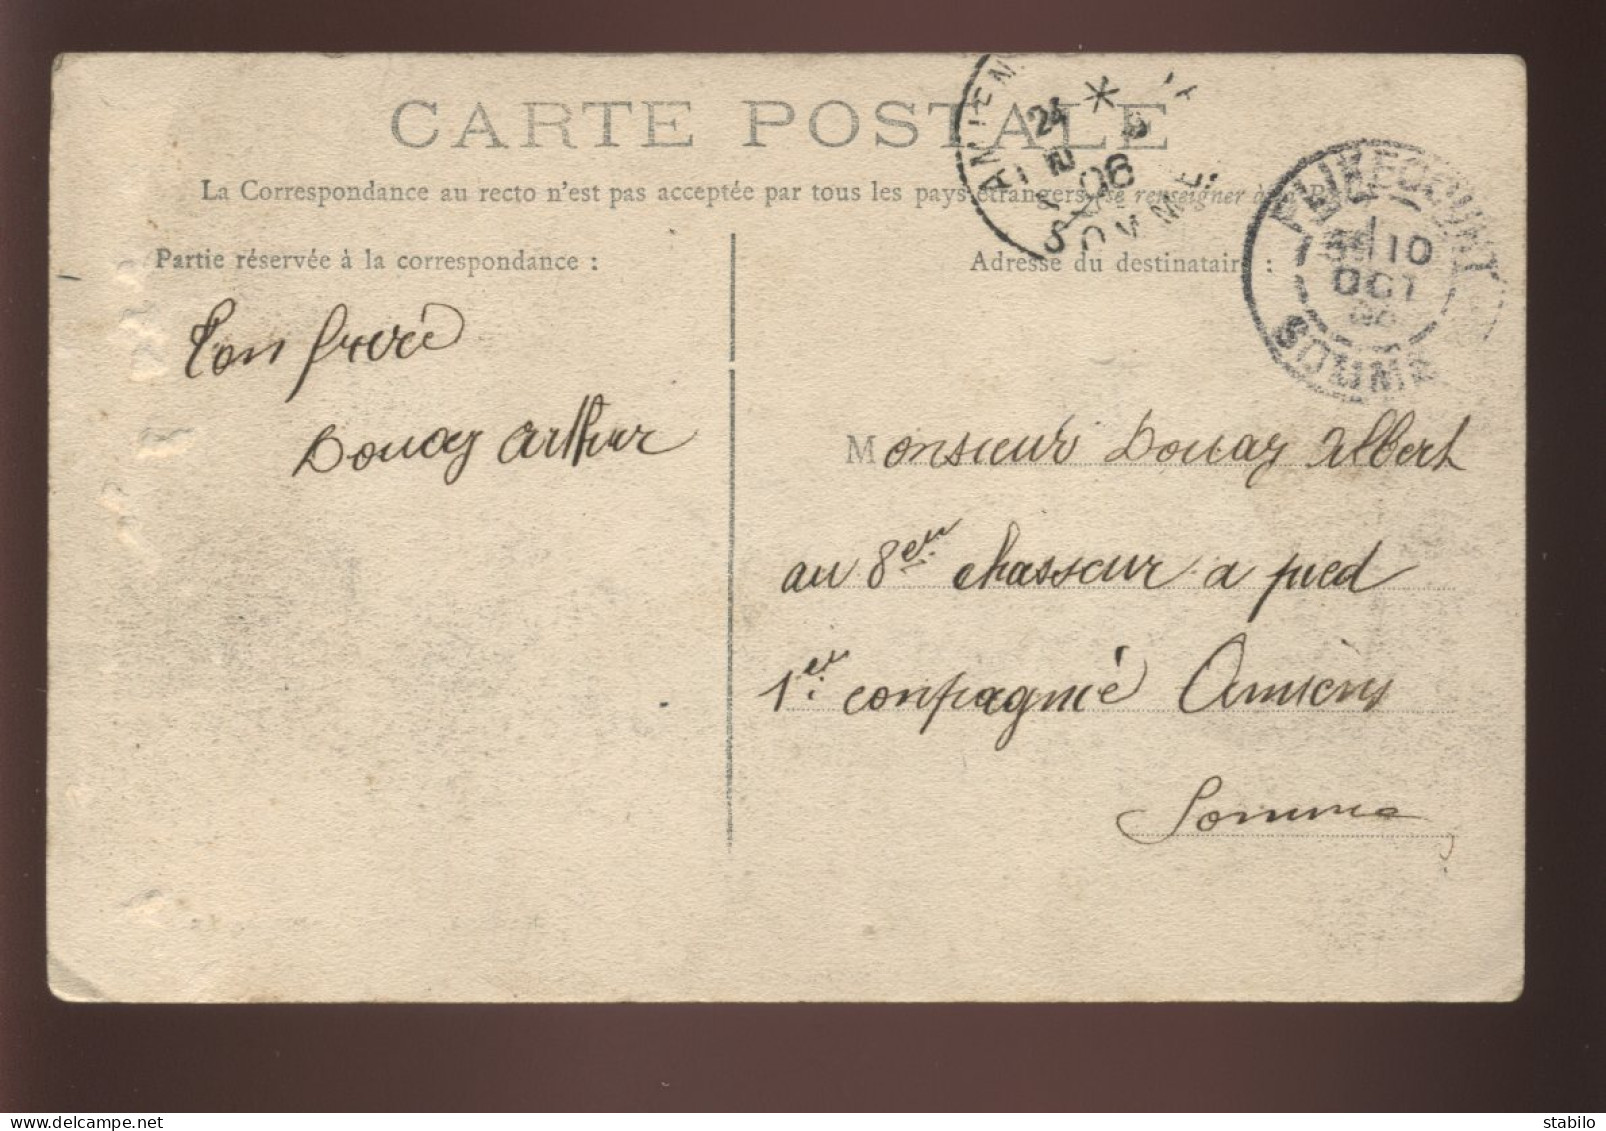 CARTE POSTALE
La Correspondance au recto n'est pas acceptée par tous les pays étrangers (se renseigner à la
AMIENS
24
06
SOMME
FLIXECOURT
10
OCT
06
SOMME
Partie réservée à la correspondance :
Adresse du destinataire :
Ton frere
Douay Arthur
Monsieur Douay Albert
au 8em chasseur a pied
1er conpagnié Amiens
Somme
delcampe.net
stabilo